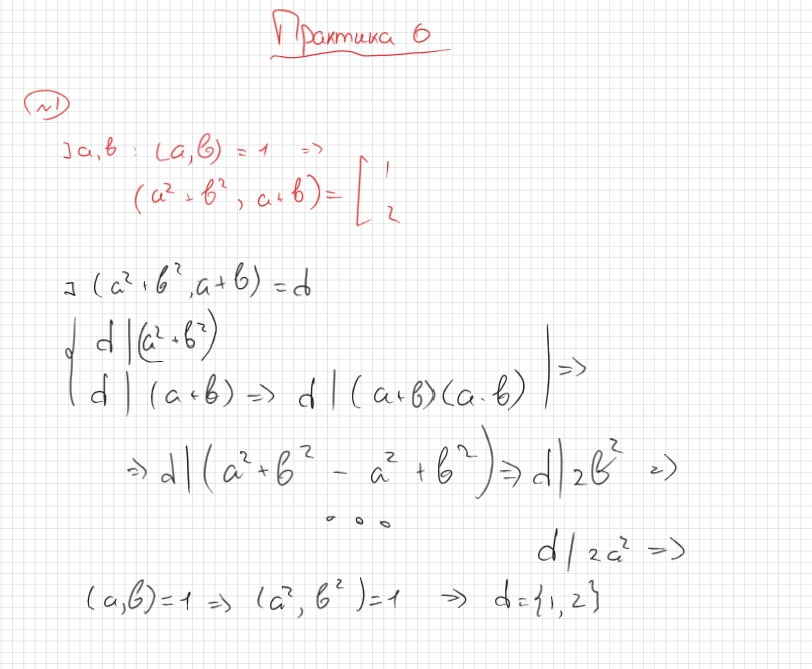 Практика 6
№1
] a, b : (a, b) = 1 =>
(a² + b², a + b) = [ 1
2
] (a² + b², a + b) = d
{ d | (a² + b²)
d | (a + b) => d | (a + b)(a - b) | =>
=> d | (a² + b² - a² + b²) => d | 2b² =>
...
d | 2a² =>
(a, b) = 1 => (a², b²) = 1 => d = {1, 2}